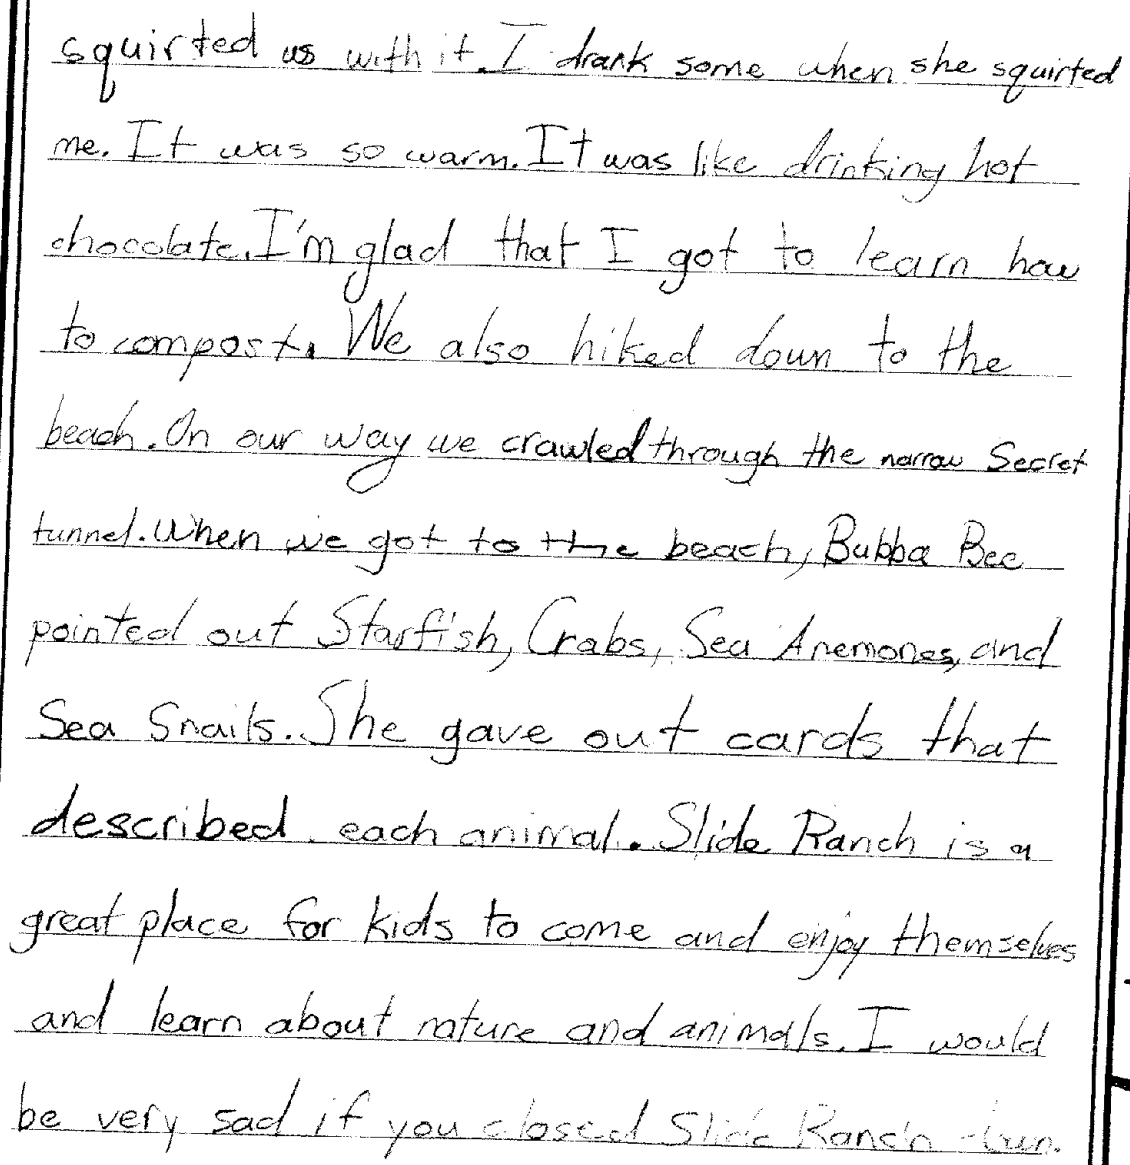 squirted us with it. I drank some when she squirted
me. It was so warm. It was like drinking hot
chocolate. I'm glad that I got to learn how
to compost. We also hiked down to the
beach. On our way we crawled through the narrow Secret
tunnel. When we got to the beach, Bubba Bee
pointed out Starfish, Crabs, Sea Anemones, and
Sea Snails. She gave out cards that
described each animal. Slide Ranch is a
great place for kids to come and enjoy themselves
and learn about nature and animals. I would
be very sad if you closed Slide Ranch